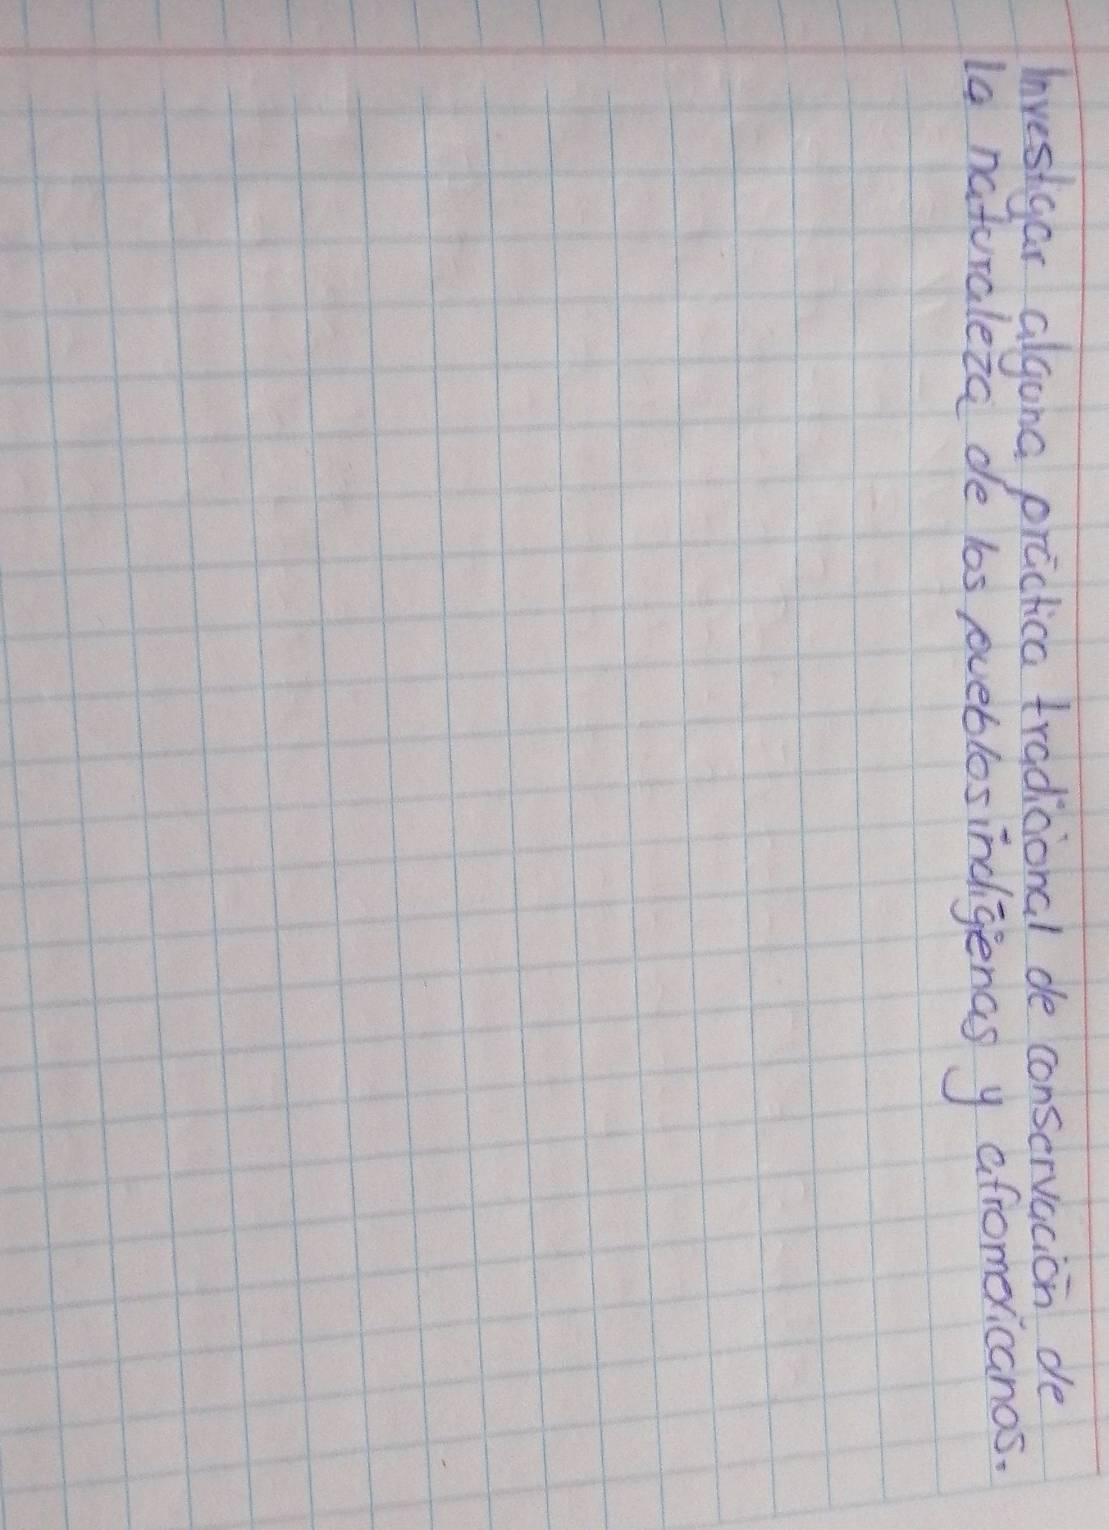 Investigar alguna práctica tradicional de conservación de
la naturaleza de los pueblos indígenas y afromexicanos.